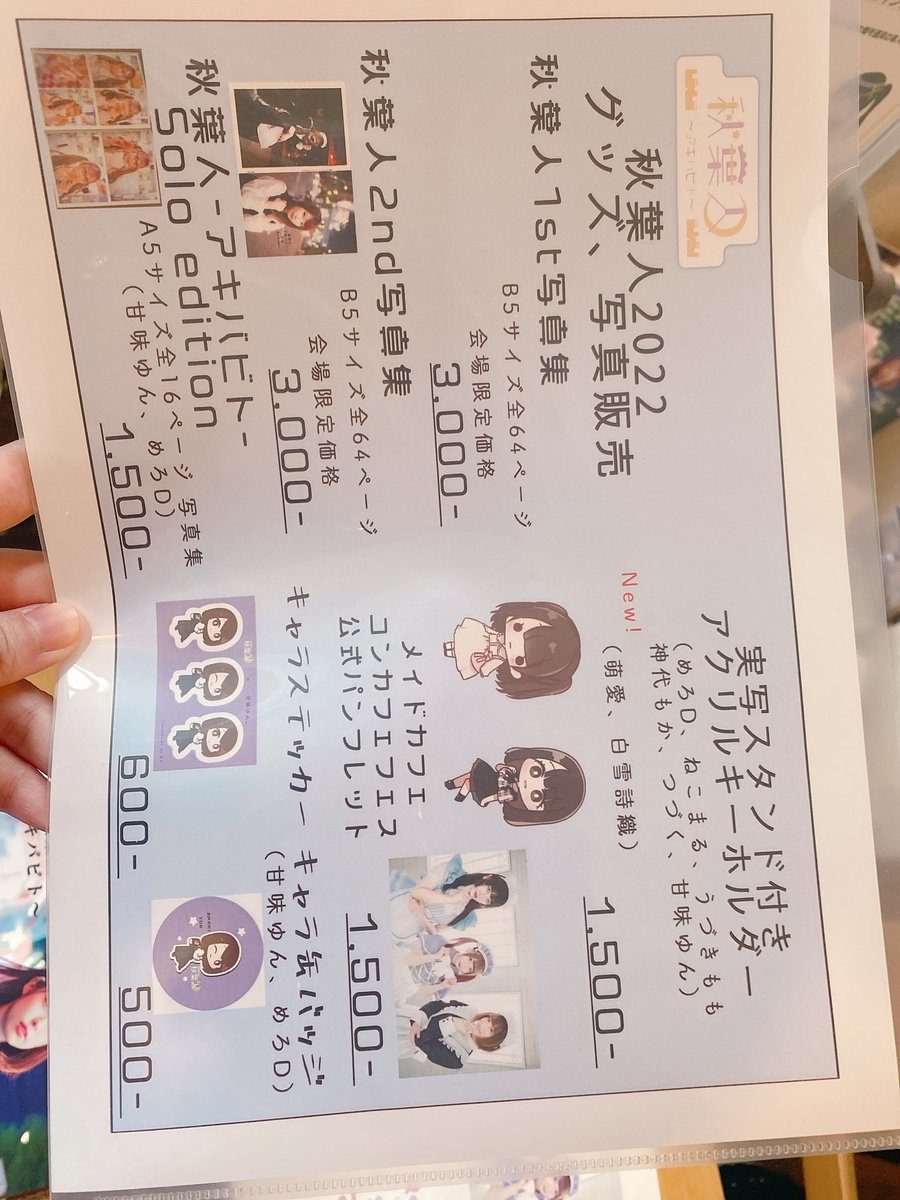 秋葉人
~アキバビト~
秋葉人2022
グッズ、写真販売
秋葉人1st写真集
B5サイズ全64ページ
会場限定価格
3,000-
秋葉人2nd写真集
B5サイズ全64ページ
会場限定価格
3,000-
秋葉人-アキバビト-
Solo edition
A5サイズ全16ページ 写真集
(甘味ゆん、めろD)
1,500-
実写スタンド付き
アクリルキーホルダー
(めろD、ねこまる、うづきもも
神代もか、つづく、甘味ゆん)
New!
(萌愛、白雪詩織)
1,500-
メイドカフェ
コンカフェフェス
公式パンフレット
1,500-
キャラステッカー
600-
キャラ缶バッジ
(甘味ゆん、めろD)
500-
キバビト~